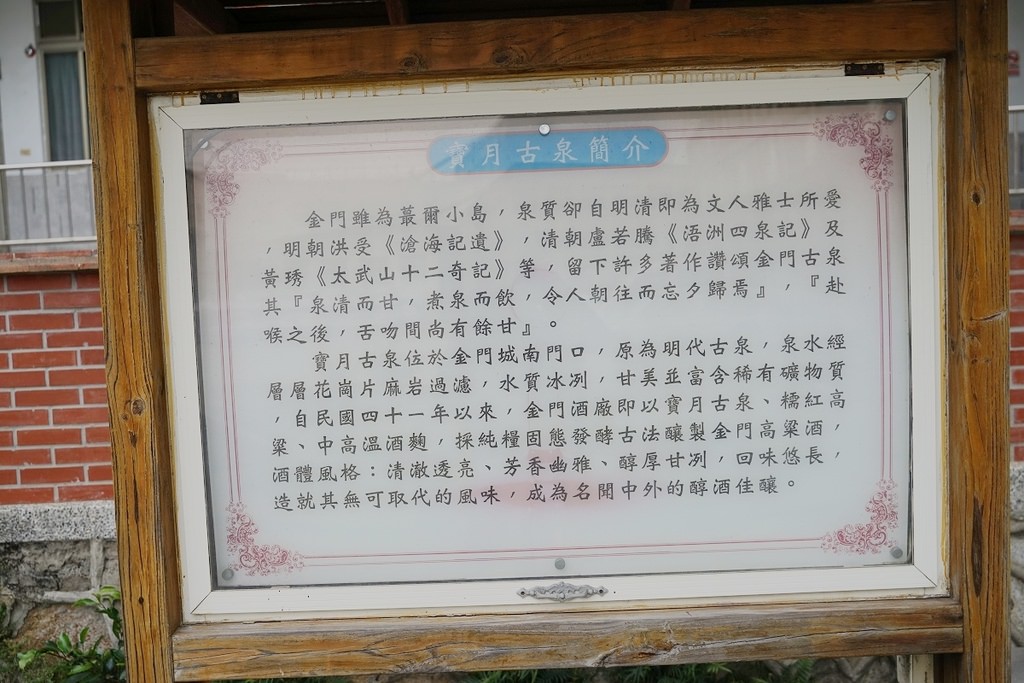 寶月古泉簡介
金門雖為蕞爾小島，泉質卻自明清即為文人雅士所愛
，明朝洪受《滄海記遺》，清朝盧若騰《浯洲四泉記》及
黃琇《太武山十二奇記》等，留下許多著作讚頌金門古泉
其『泉清而甘，煮泉而飲，令人朝往而忘夕歸焉』，『赴
喉之後，舌吻間尚有餘甘』。
寶月古泉位於金門城南門口，原為明代古泉，泉水經
層層花崗片麻岩過濾，水質冰冽，甘美並富含稀有礦物質
，自民國四十一年以來，金門酒廠即以寶月古泉、糯紅高
粱、中高溫酒麴，採純糧固態發酵古法釀製金門高粱酒，
酒體風格：清澈透亮、芳香幽雅、醇厚甘冽，回味悠長，
造就其無可取代的風味，成為名聞中外的醇酒佳釀。